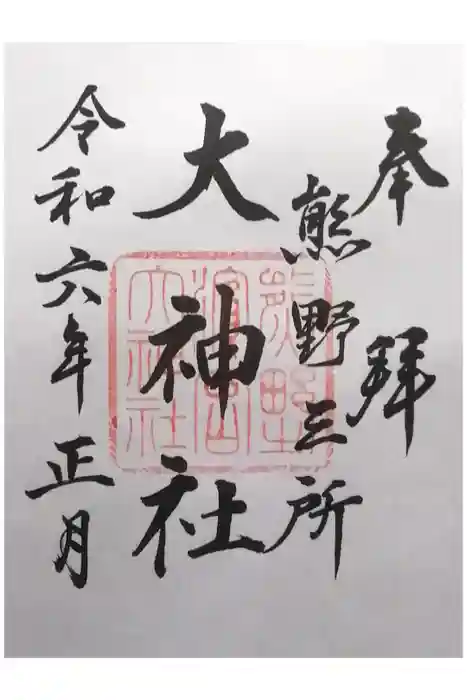 奉拜
熊野三所
大神社
令和六年正月
熊野
濱宮
大神社